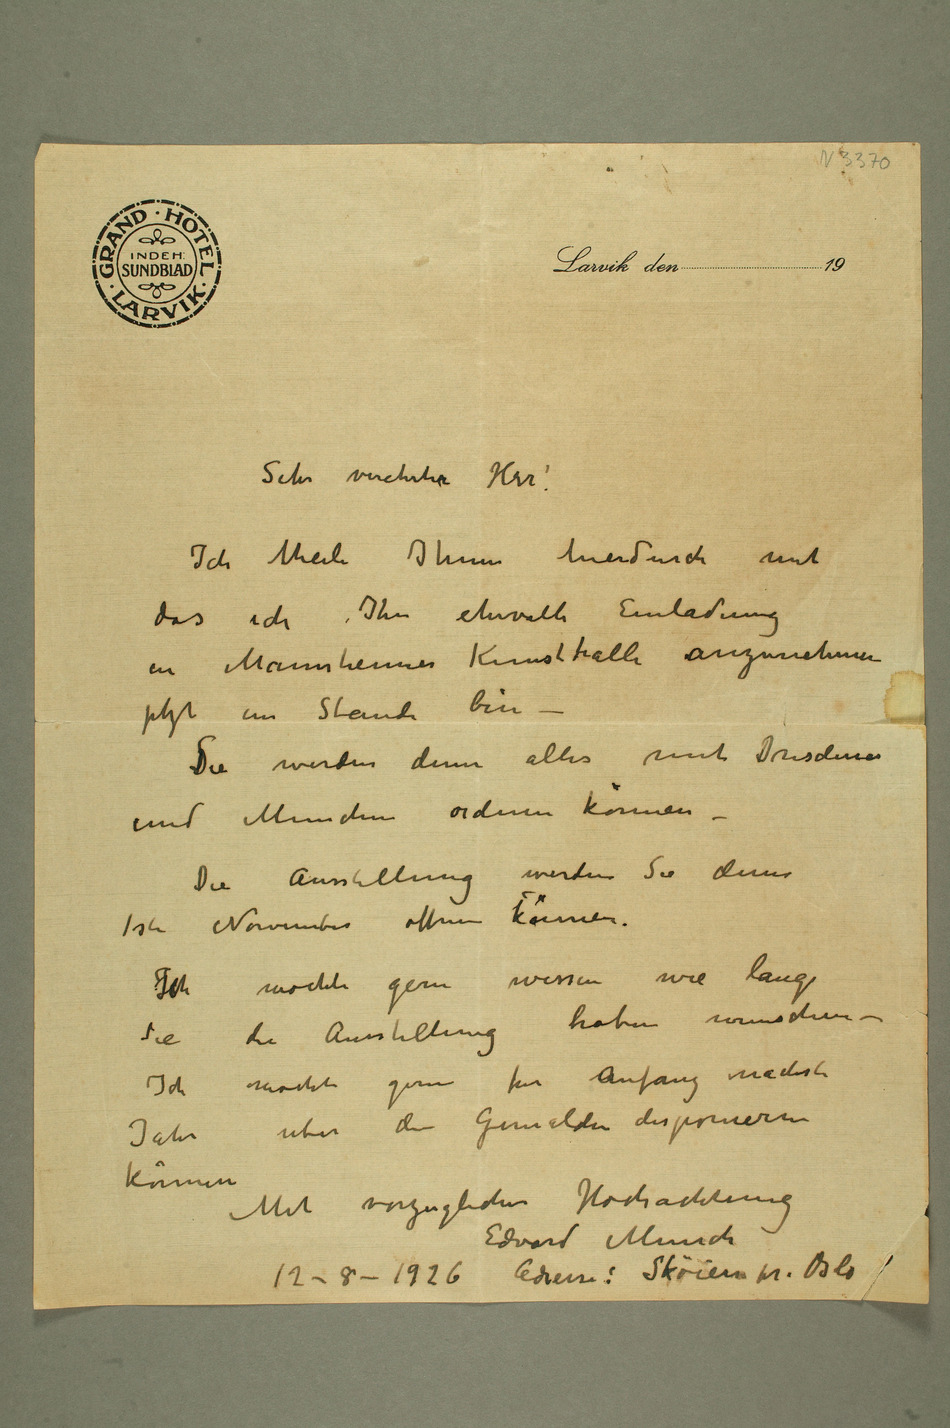 N 3370
GRAND · HOTEL · LARVIK ·
INDEH.
SUNDBLAD
Larvik den 19
Sehr verehrter Herr!
Ich theile Ihnen hierdurch mit
das ich Ihre ehrvolle Einladung
in Mannheimer Kunsthalle anzunehmen
jetzt im Stande bin –
Sie werden denn alles mit Dresdener
und München ordnen können –
Die Ausstellung werden Sie denn
1ste November offnen können.
Ich mochte gern wissen wie lange
Sie die Ausstellung haben wunschen –
Ich mochte gern fur Anfang nachste
Jahr uber die Gemälden disponieren
können
Mit vorzuglicher Hochachtung
Edvard Munch
12 – 8 – 1926 Adresse: Sköien pr. Oslo